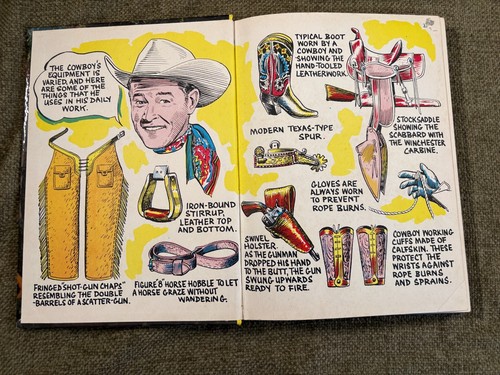 THE COWBOY'S
EQUIPMENT IS
VARIED, AND HERE
ARE SOME OF THE
THINGS THAT HE
USES IN HIS DAILY
WORK.
IRON-BOUND
STIRRUP,
LEATHER TOP
AND BOTTOM.
FRINGED "SHOT-GUN CHAPS"
RESEMBLING THE DOUBLE
-BARRELS OF A SCATTER-GUN.
FIGURE "8" HORSE HOBBLE TO LET
A HORSE GRAZE WITHOUT
WANDERING.
TYPICAL BOOT
WORN BY A
COWBOY AND
SHOWING THE
HAND-TOOLED
LEATHERWORK.
MODERN TEXAS-TYPE
SPUR.
STOCKSADDLE
SHOWING THE
SCABBARD WITH
THE WINCHESTER
CARBINE.
GLOVES ARE
ALWAYS WORN
TO PREVENT
ROPE BURNS.
SWIVEL
HOLSTER.
AS THE GUNMAN
DROPPED HIS HAND
TO THE BUTT, THE GUN
SWUNG UPWARDS
READY TO FIRE.
COWBOY WORKING
CUFFS MADE OF
CALFSKIN. THESE
PROTECT THE
WRISTS AGAINST
ROPE BURNS
AND SPRAINS.